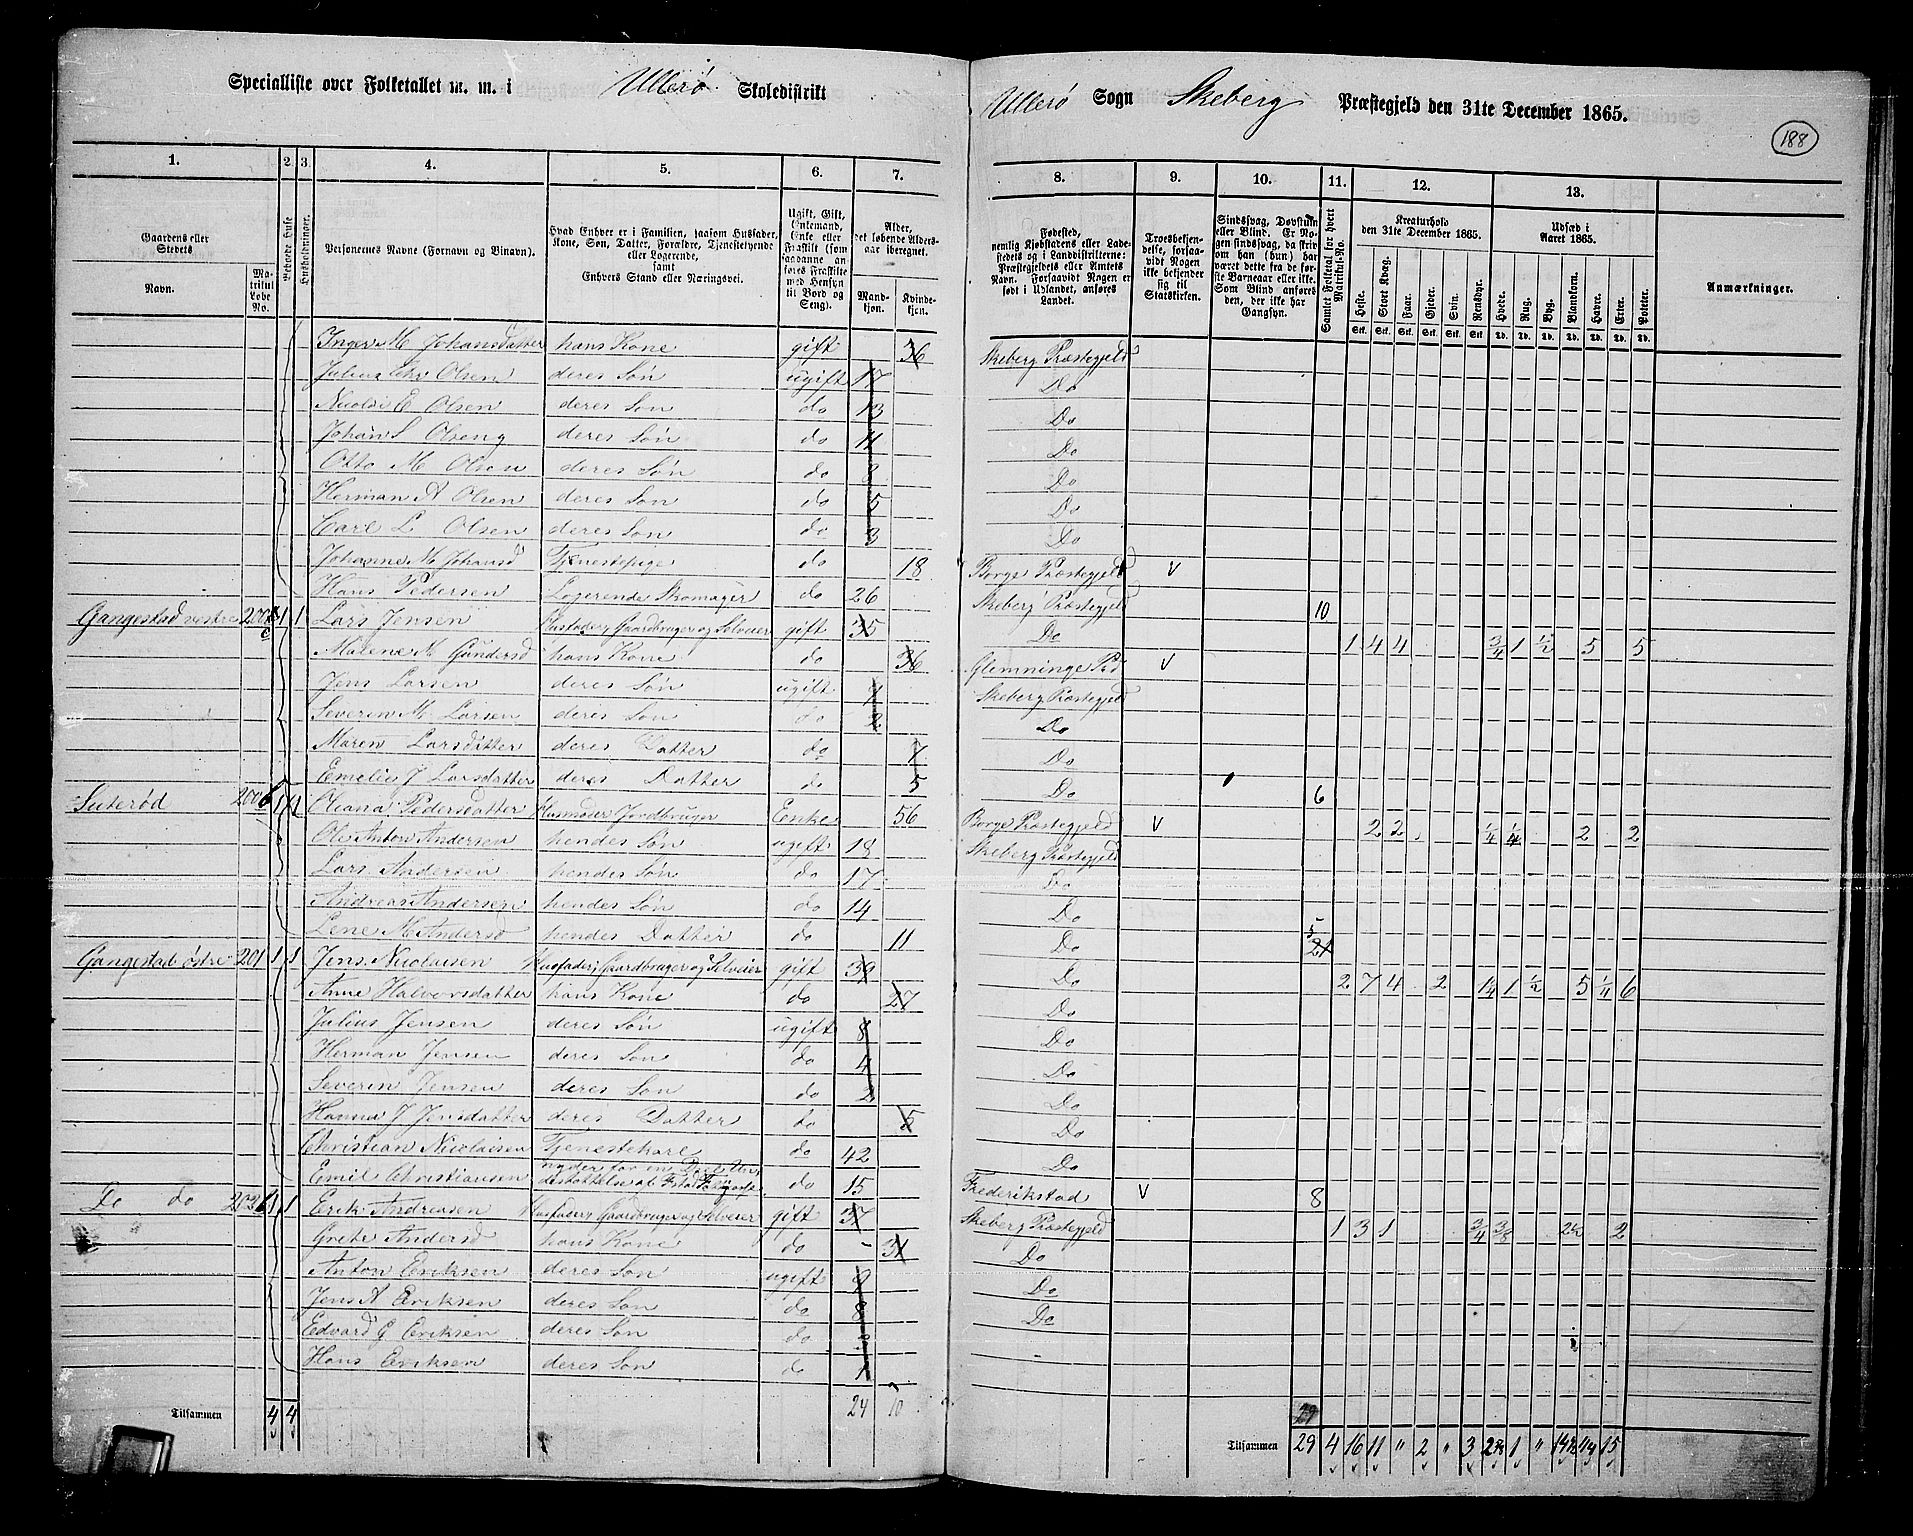 Specialliste over Folketallet m. m. i Ullerø Skoledistrikt
Ullerø Sogn Skeberg Præstegjeld den 31te December 1865.
188
1. 2. 3. 4. 5. 6. 7. 8. 9. 10. 11. 12. 13.
Gaardens eller Stedets
Navn.
Matrikul Løbe No.
Beboede Huse
Husholdninger.
Personernes Navne (Fornavn og Binavn).
Hvad Enhver er i Familien, saasom Husfader, Kone, Søn, Datter, Forældre, Tjenestetyende eller Logerende, samt Enhvers Stand eller Næringsvei.
Ugift, Gift, Enkemand, Enke eller Fraskilt (som saadanne anføres Fraskilte med Hensyn til Bord og Seng).
Alder, det løbende Aldersaar iberegnet.
Mandkjøn. Kvindekjøn.
Fødested, nemlig Kjøbstadens eller Ladestedets og i Landdistrikterne: Præstegjeldets eller Amtets Navn. Forsaavidt Nogen er født i Udlandet, anføres Landet.
Troesbekjendelse, forsaavidt Nogen ikke bekjender sig til Statskirken.
Sindssvag, Døvstum eller Blind. Er Nogen sindssvag, da skrives om han (hun) har været dette fra de første Barneaar eller ikke. Som Blind anføres den, der ikke har Gangsyn.
Samlet Folketal for hvert Matrikul-No.
Kreaturhold den 31te December 1865.
Heste. Stort Kvæg. Faar. Gjeder. Svin. Rensdyr.
Udsæd i Aaret 1865.
Hvede. Rug. Byg. Blandkorn. Havre. Erter. Poteter.
Anmærkninger.
Inger M Johansdatter hans Kone gift 36 Skeberg Præstegjeld
Julius Ehr Olsen deres Søn ugift 17 Do
Nicolai E Olsen deres Søn do 13 Do
Johan S Olseng deres Søn do 11 Do
Otto M Olsen deres Søn do 8 Do
Herman A Olsen deres Søn do 5 Do
Carl L Olsen deres Søn do 3 Do
Johanne M Johansd Tjenestepige do 18 Borge Præstegjeld
Hans Pedersen Logerende Skomager do 26 Skeberg Præstegjeld 10
Gangestad vestre 200 1 1 Lars Jensen Husfader, Gaardbruger og Selveier gift 35 Do 1 4 4 3/4 1 1/2 5 5
Malene M Gundersd hans Kone do 36 Glemminge Pd
Jens Larsen deres Søn ugift 7 Skeberg Præstegjeld
Severin M Larsen deres Søn do 2 Do
Maren Larsdatter deres Datter do 7 Do
Emelie J Larsdatter deres Datter do 5 Do 6
Suterød 200 1 1 Oliana Pedersdatter Husmoder Jordbruger Enke 56 Borge Præstegjeld 2 2 1/4 1/4 2 2
Ole Anton Andersen hendes Søn ugift 18 Skeberg Præstegjeld
Lars Andersen hendes Søn do 17 Do
Andreas Andersen hendes Søn do 14 Do
Lene M Andersd hendes Datter do 11 Do 5 21
Gangestad østre 201 1 1 Jens Nicolaisen Husfader, Gaardbruger og Selveier gift 39 Do 2 7 4 2 1/4 1 1/2 5 1/4 6
Anne Halvorsdatter hans Kone do 27 Do
Julius Jensen deres Søn ugift 8 Do
Herman Jensen deres Søn do 4 Do
Severin Jensen deres Søn do 2 Do
Hanna J Jensdatter deres Datter do 5 Do
Christian Nicolaisen Tjenestekarl do 42 Do
Emil Christiansen do 15 Frederikstad 8
Do do 1 1 Erik Andreasen Husfader, Gaardbruger og Selveier gift 37 Skeberg Præstegjeld 1 3 1 3/4 3/8 2½ 2
Grete Andersd hans Kone do 31 Do
Anton Eriksen deres Søn ugift 9 Do
Jens A Eriksen deres Søn do 8 Do
Edvard G Eriksen deres Søn do
Hans Eriksen deres Søn do 1
Tilsammen 4 4 24 10
29
Tilsammen 29 4 16 11 " 2 " 3 1 " 15